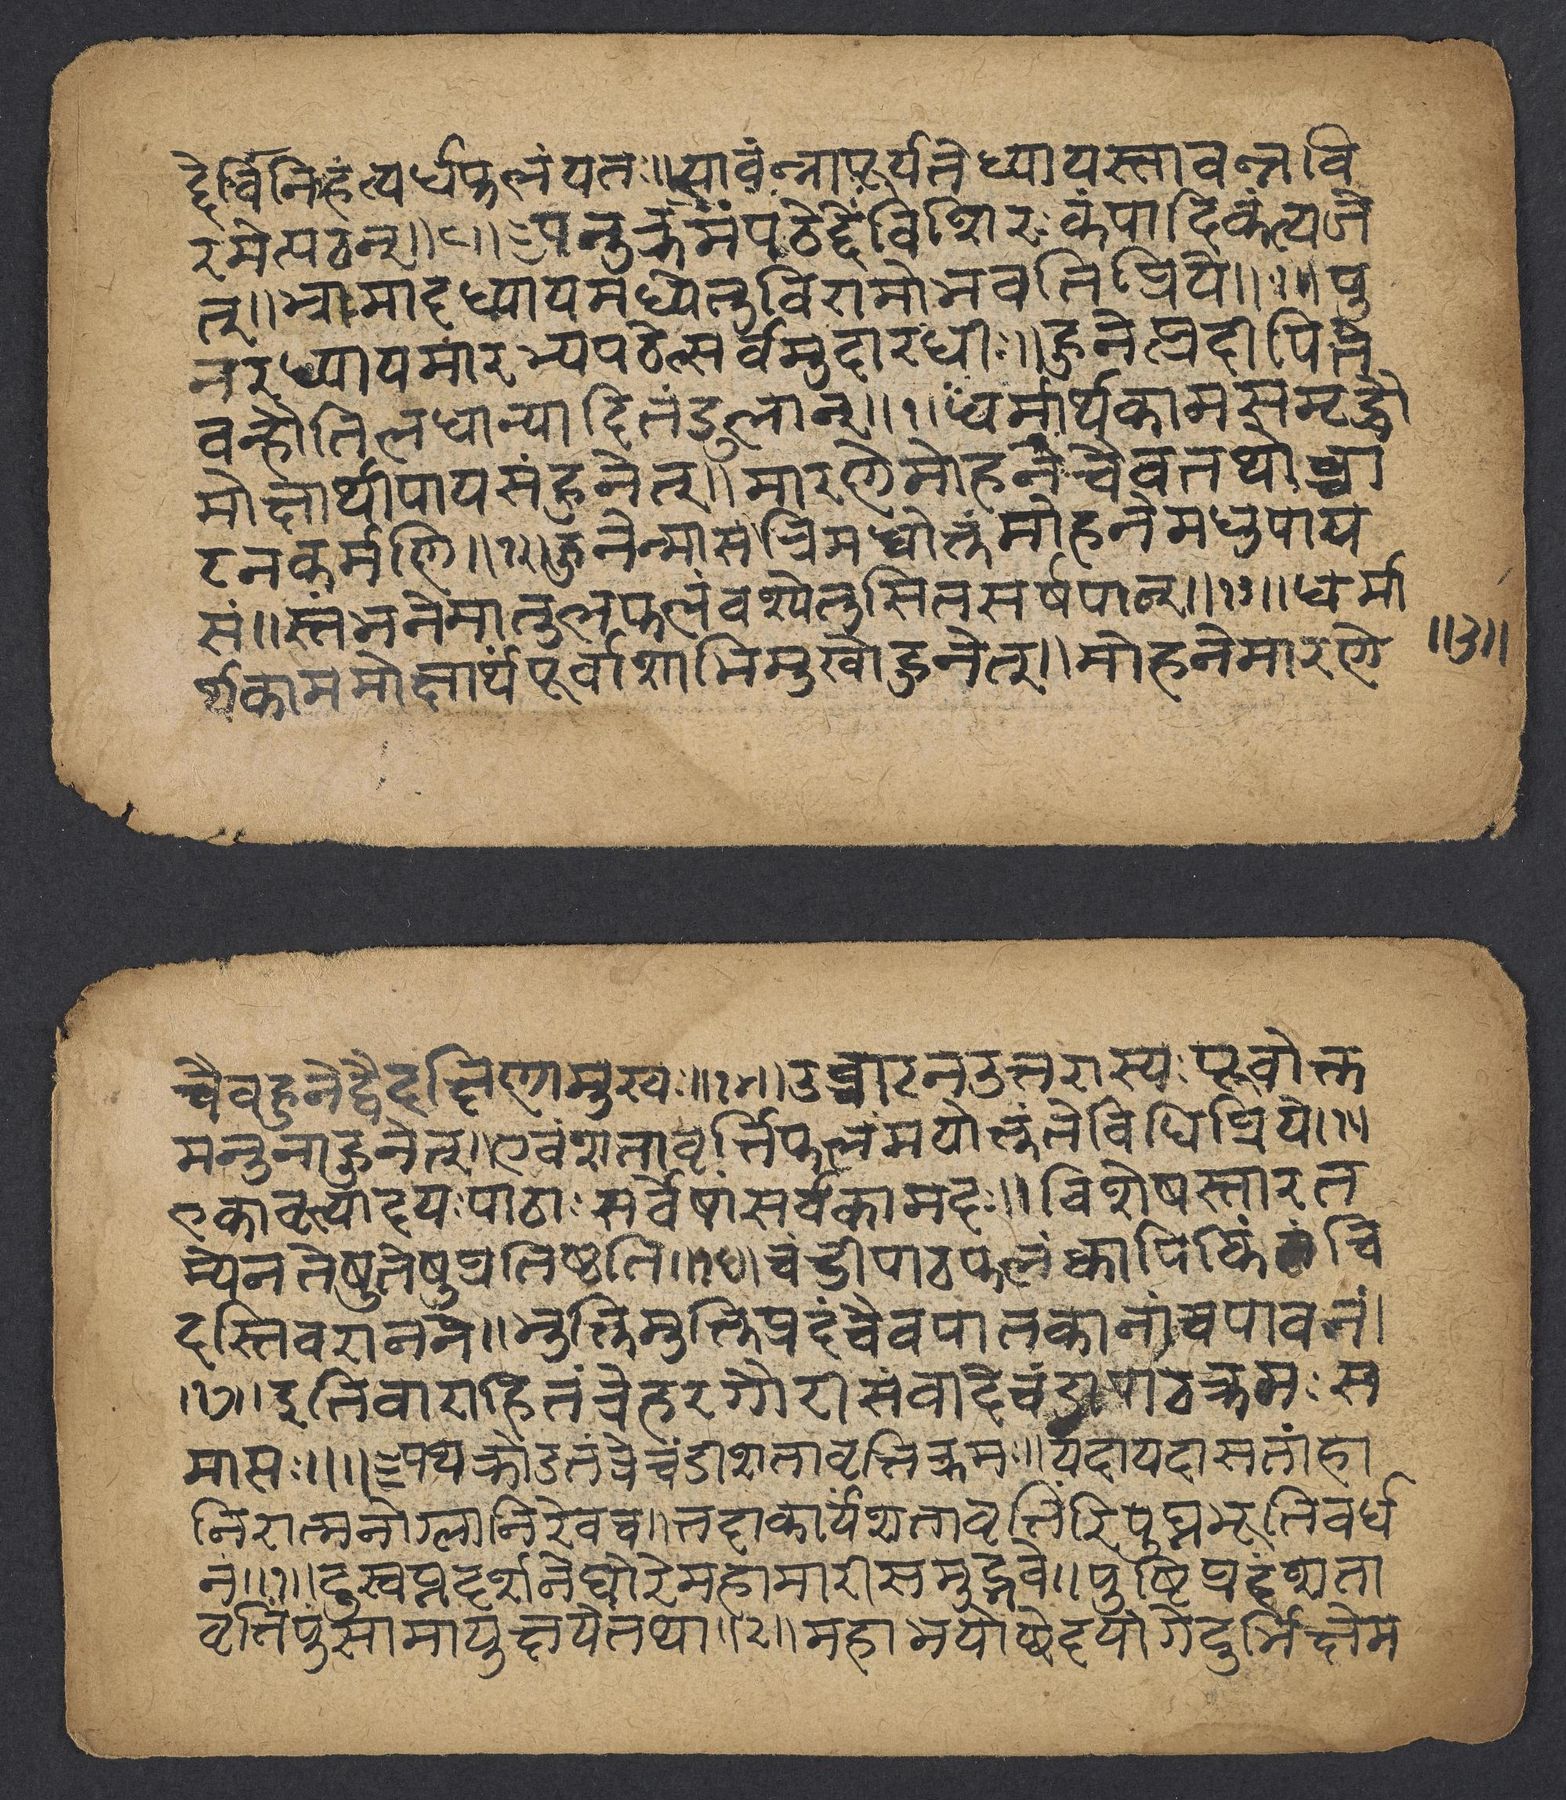 द्वैर्विनिर्हंत्यर्धफलंयतः॥यावंन्नापूर्यतेध्यायस्तावन्नवि
रमेत्पठन्॥९॥अपनुक्रंमंपठेद्देविशिरःकंपादिकंत्यजे
त्॥भ्रामादध्यायमध्येतुविरामोभवतिप्रिये॥१०॥पु
नरध्यायमारभ्यपठेत्सर्वमुदारधीः॥हुनेत्प्रदीपिते
वन्हौतिलधान्यादितंडुलान्॥१॥धर्मार्थकामसमृद्धौ
मोक्षार्थीपायसंहुनेत्॥मारणेमोहनेचैवतथोच्चा
टनकर्मणि॥१२॥हुनेन्मासंत्रिमध्वोक्तंमोहनेमधुपाय
सं॥स्तंभनेमातुलफलंवश्येतुसितसर्षपान्॥१३॥धर्मा
र्थकाममोक्षार्थंपूर्वाशाभिमुखोहुनेत्॥मोहनेमारणे
॥३॥
चैवहुनेद्वैदक्षिणामुखः॥१४॥उच्चाटनउत्तरास्यःपूर्वोक्त
मनुनाहुनेत्॥एवंशतावृर्त्तिफलंमयोक्तंतेविधिप्रिये॥१५
एकावृत्यादयःपाठाःसर्वेषांसर्वकामदः॥विशेषस्तारत
म्येनतेषुतेषुप्रतिष्ठति॥१६॥चंडीपाठफलंक्वापिकिं चि
दस्तिवरानने॥भुक्तिमुक्तिप्रदंचैवपातकानांचपावनं।
।१७॥इतिवाराहितंत्रेहरगौरीसंवादेचंडीपाठक्रमःस
माप्तः॥॥अथक्रोडतंत्रेचंडीशतावृत्तिक्रमः॥यदायदासतांहा
निरात्मनोग्लानिरेवच॥तदाकार्यंशतावृत्तिंरिपुघ्नभूतिवर्ध
नं॥१॥दुस्वप्नदर्शनेघोरेमहामारीसमुद्भवे॥पुष्टिप्रदंशता
वृत्तिंपुंसामायुक्षयेतथा॥२॥महाभयेष्छेदयोगेदुर्भिक्षेम